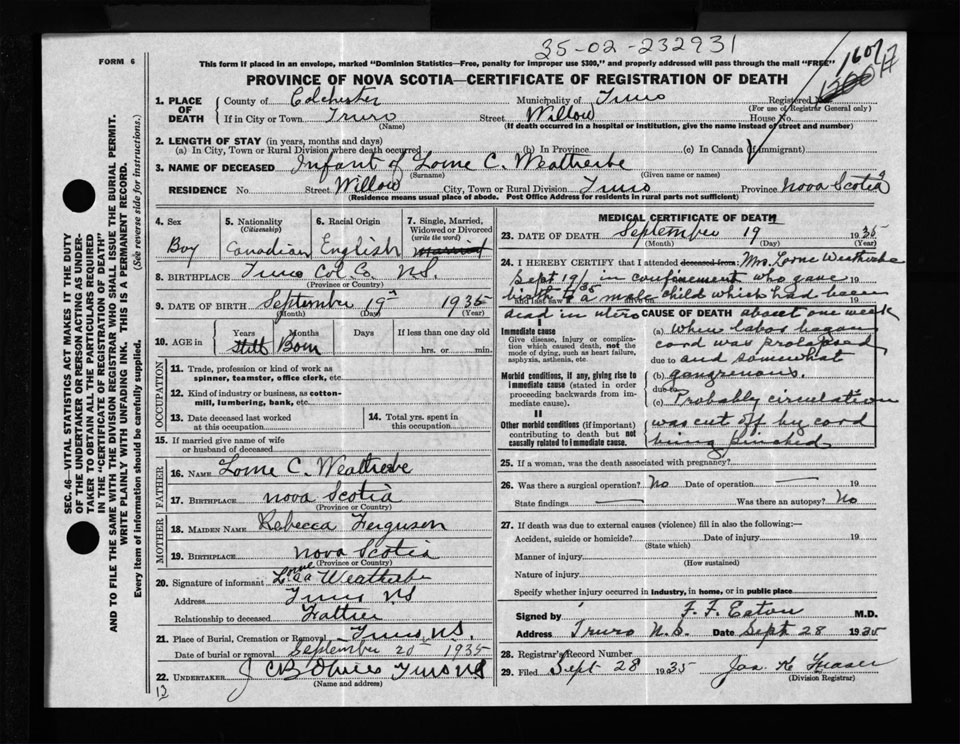 35-02-232931
FORM 6
This form if placed in an envelope, marked "Dominion Statistics—Free, penalty for improper use $300," and properly addressed will pass through the mail "FREE"
1607
PROVINCE OF NOVA SCOTIA—CERTIFICATE OF REGISTRATION OF DEATH
1300
1. PLACE OF DEATH
County of Colchester Municipality of Truro Registered No.
(For use of Registrar General only)
If in City or Town Truro Street Willow House No.
(Name) (If death occurred in a hospital or institution, give the name instead of street and number)
2. LENGTH OF STAY (in years, months and days)
(a) In City, Town or Rural Division where death occurred (b) In Province (c) In Canada (if immigrant)
3. NAME OF DECEASED Infant of Lorne C. Weatherbe
(Surname) (Given name or names)
RESIDENCE No. Street Willow City, Town or Rural Division Truro Province Nova Scotia
(Residence means usual place of abode. Post Office Address for residents in rural parts not sufficient)
4. Sex
Boy
5. Nationality
(Citizenship)
Canadian
6. Racial Origin
English
7. Single, Married, Widowed or Divorced
(write the word)
8. BIRTHPLACE Truro Col. Co. N.S.
(Province or Country)
9. DATE OF BIRTH September 19th 1935
(Month) (Day) (Year)
10. AGE in Years Months Days If less than one day old
Still Born hrs. or min.
OCCUPATION
11. Trade, profession or kind of work as
spinner, teamster, office clerk, etc.
12. Kind of industry or business, as cotton-
mill, lumbering, bank, etc.
13. Date deceased last worked
at this occupation
14. Total yrs. spent in
this occupation
15. If married give name of wife
or husband of deceased
FATHER
16. NAME Lorne C. Weatherbe
17. BIRTHPLACE Nova Scotia
(Province or Country)
MOTHER
18. MAIDEN NAME Rebecca Ferguson
19. BIRTHPLACE Nova Scotia
(Province or Country)
20. Signature of informant Lorne Weatherbe
Address Truro NS
Relationship to deceased Father
21. Place of Burial, Cremation or Removal Truro, NS.
Date of burial or removal September 20th 1935
22. UNDERTAKER Truro NS
(Name and address)
13
MEDICAL CERTIFICATE OF DEATH
23. DATE OF DEATH September 19th 1935
(Month) (Day) (Year)
24. I HEREBY CERTIFY that I attended deceased from: Mrs. Lorne Weatherbe
Sept 19/35 in confinement who gave
birth to a male child which had been
and last saw h alive on 19
dead in utero about one week
CAUSE OF DEATH
Immediate cause
Give disease, injury or complica-
tion which caused death, not the
mode of dying, such as heart failure,
asphyxia, asthenia, etc.
(a) when labor began
cord was prolapsed
due to and somewhat
Morbid conditions, if any, giving rise to
immediate cause (stated in order
proceeding backwards from im-
mediate cause).
(b) gangrenous.
due to
(c) Probably circulation
II
Other morbid conditions (if important)
contributing to death but not
causally related to immediate cause.
was cut off by cord
being pinched
25. If a woman, was the death associated with pregnancy?
26. Was there a surgical operation? No Date of operation — 19
State findings — Was there an autopsy? No
27. If death was due to external causes (violence) fill in also the following:—
Accident, suicide or homicide? Date of injury 19
(State which)
Manner of injury
(How sustained)
Nature of injury
Specify whether injury occurred in industry, in home, or in public place
Signed by F. F. Eaton M.D.
Address Truro N.S. Date Sept 28 1935
28. Registrar's Record Number
29. Filed Sept 28 1935 Jas. K Fraser
(Division Registrar)
SEC. 46—VITAL STATISTICS ACT MAKES IT THE DUTY
OF THE UNDERTAKER OR PERSON ACTING AS UNDER-
TAKER TO OBTAIN ALL THE PARTICULARS REQUIRED
IN THE "CERTIFICATE OF REGISTRATION OF DEATH"
AND TO FILE THE SAME WITH THE DIVISION REGISTRAR WHO SHALL ISSUE THE BURIAL PERMIT.
WRITE PLAINLY WITH UNFADING INK. THIS IS A PERMANENT RECORD.
Every item of information should be carefully supplied. (See reverse side for instructions.)